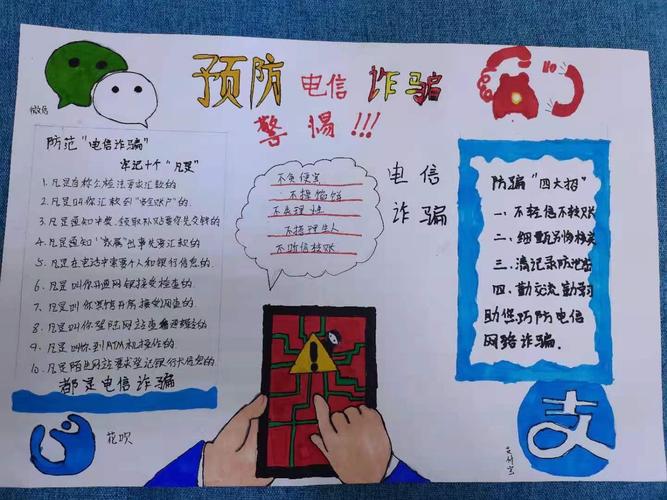 预防电信诈骗
警惕!!!
微信
防范"电信诈骗"
牢记十个"凡是"
1. 凡是自称公检法要求汇款的.
2. 凡是叫你汇款到"安全账户"的.
3. 凡是通知中奖、领取补贴要你先交钱的
4. 凡是通知"家属"出事先要汇款的.
5. 凡是在电话中索要个人和银行信息的.
6. 凡是叫你开通网银接受检查的.
7. 凡是叫你宾馆开房接受调查的.
8. 凡是叫你登陆网站查看通缉令的
9. 凡是叫你到ATM机操作的.
10. 凡是陌生网站要求登记银行卡信息的.
都是电信诈骗
不贪便宜
不轻信转账
电信
诈骗
防骗"四大招"
一、不轻信不转账
二、细甄别多核实
三、清记录防泄密
四、勤交流勤
助您巧防电信
网络诈骗.
支
支付宝